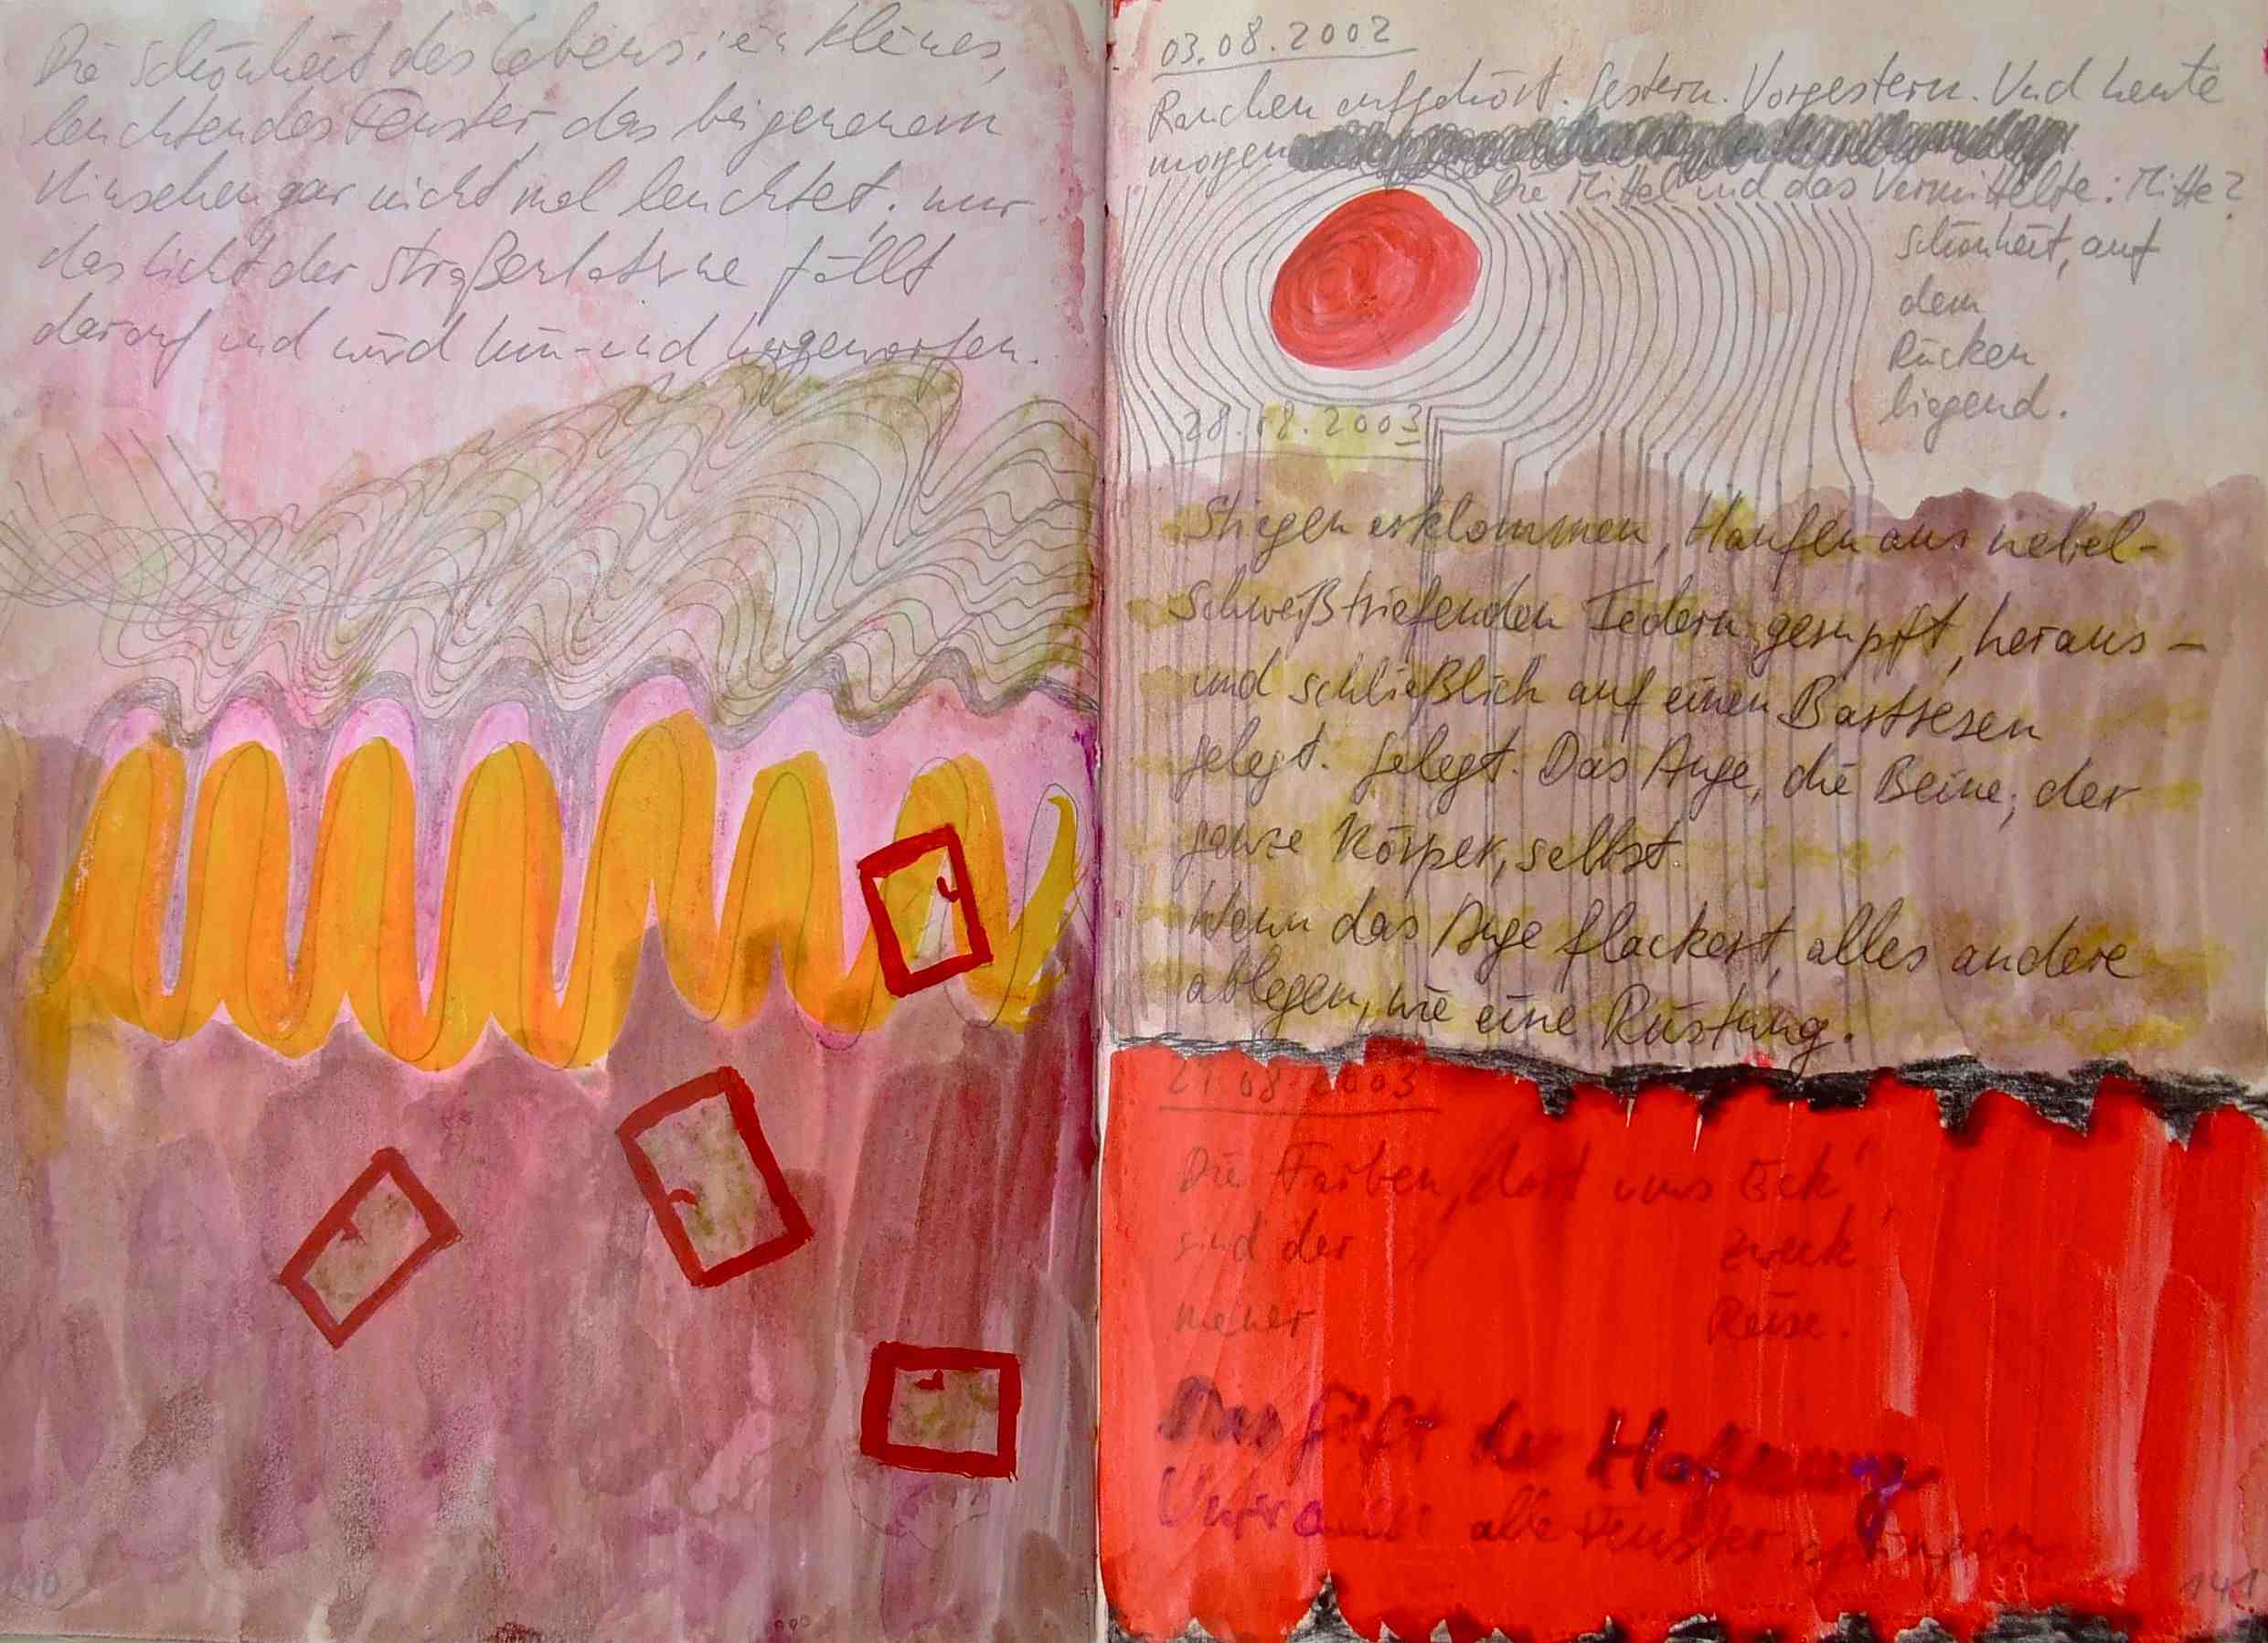 Die Schönheit des Lebens: ein kleines,
leuchtendes Fenster, das bei genauem
Hinsehen gar nicht mal leuchtet; nur
das Licht der Straßenlaterne fällt
darauf und wird hin- und hergeworfen.
03.08.2002
Rauchen aufgehört. Gestern. Vorgestern. Und heute
morgen
Die Mittel und das Vermittelte: Mitte?
Schönheit, auf
dem
Rücken
liegend.
28.08.2003
Stiegen erklommen, Haufen aus nebel-
schweißtriefenden Federn gerupft, heraus -
und schließlich auf einen Bastbesen
gelegt. Gelegt. Das Auge, die Beine, der
ganze Körper, selbst.
Wenn das Auge flackert, alles andere
ablegen, wie eine Rüstung.
08.2003
Die Farben, dort ums Eck',
sind der Zweck
meiner Reise.
Das Gift der Hoffnung
alle Fenster
141